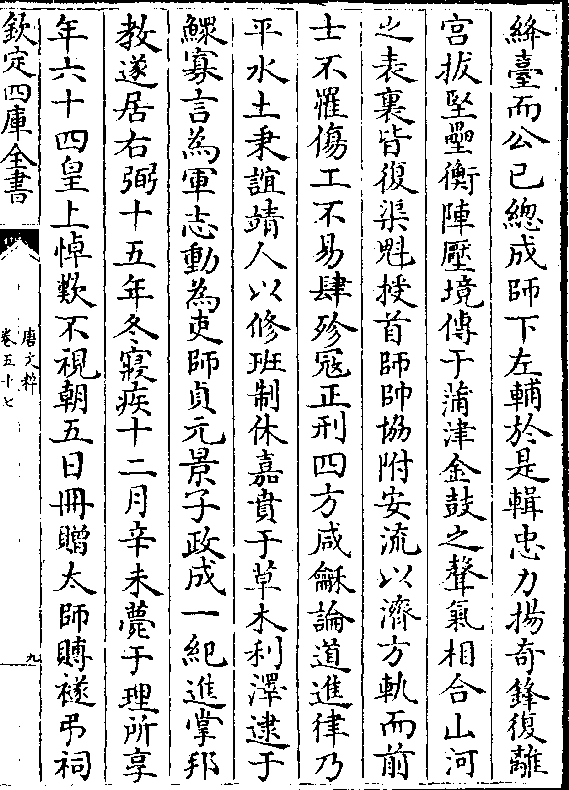 絳臺而公已總成師下左輔於是輯忠力揚奇鋒復離
宮拔堅壘衡陣壓境傅于蒲津金鼓之聲氣相合山河
之表裏皆復渠魁授首師帥協附安流以濟方軌而前
士不罹傷工不易肆殄寇正刑四方咸龢論道進律乃
平水土秉誼靖人以修班制休嘉賁于草木利澤逮于
鰥寡言為軍志動為吏師貞元景子政成一紀進掌邦
教遂居右弼十五年冬寢疾十二月辛未薨于理所享
年六十四皇上悼歎不視朝五日冊贈太師賻襚弔祠
欽定四庫全書
唐文粹
卷五十七
九